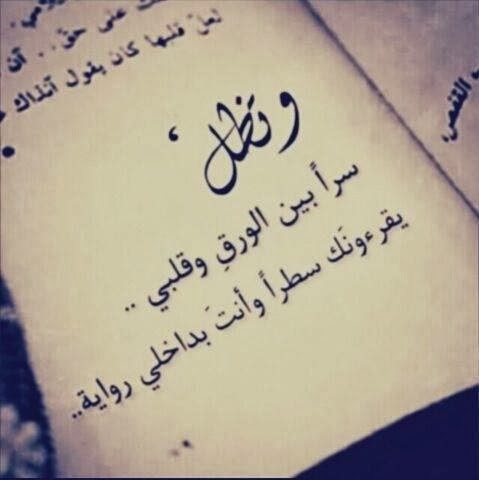 لعل قلبها كان يقول آنذاك
وتظل ،
سراً بين الورقِ وقلبي ..
يقرءونَك سطراً وأنتَ بداخلي رواية..
القفص،